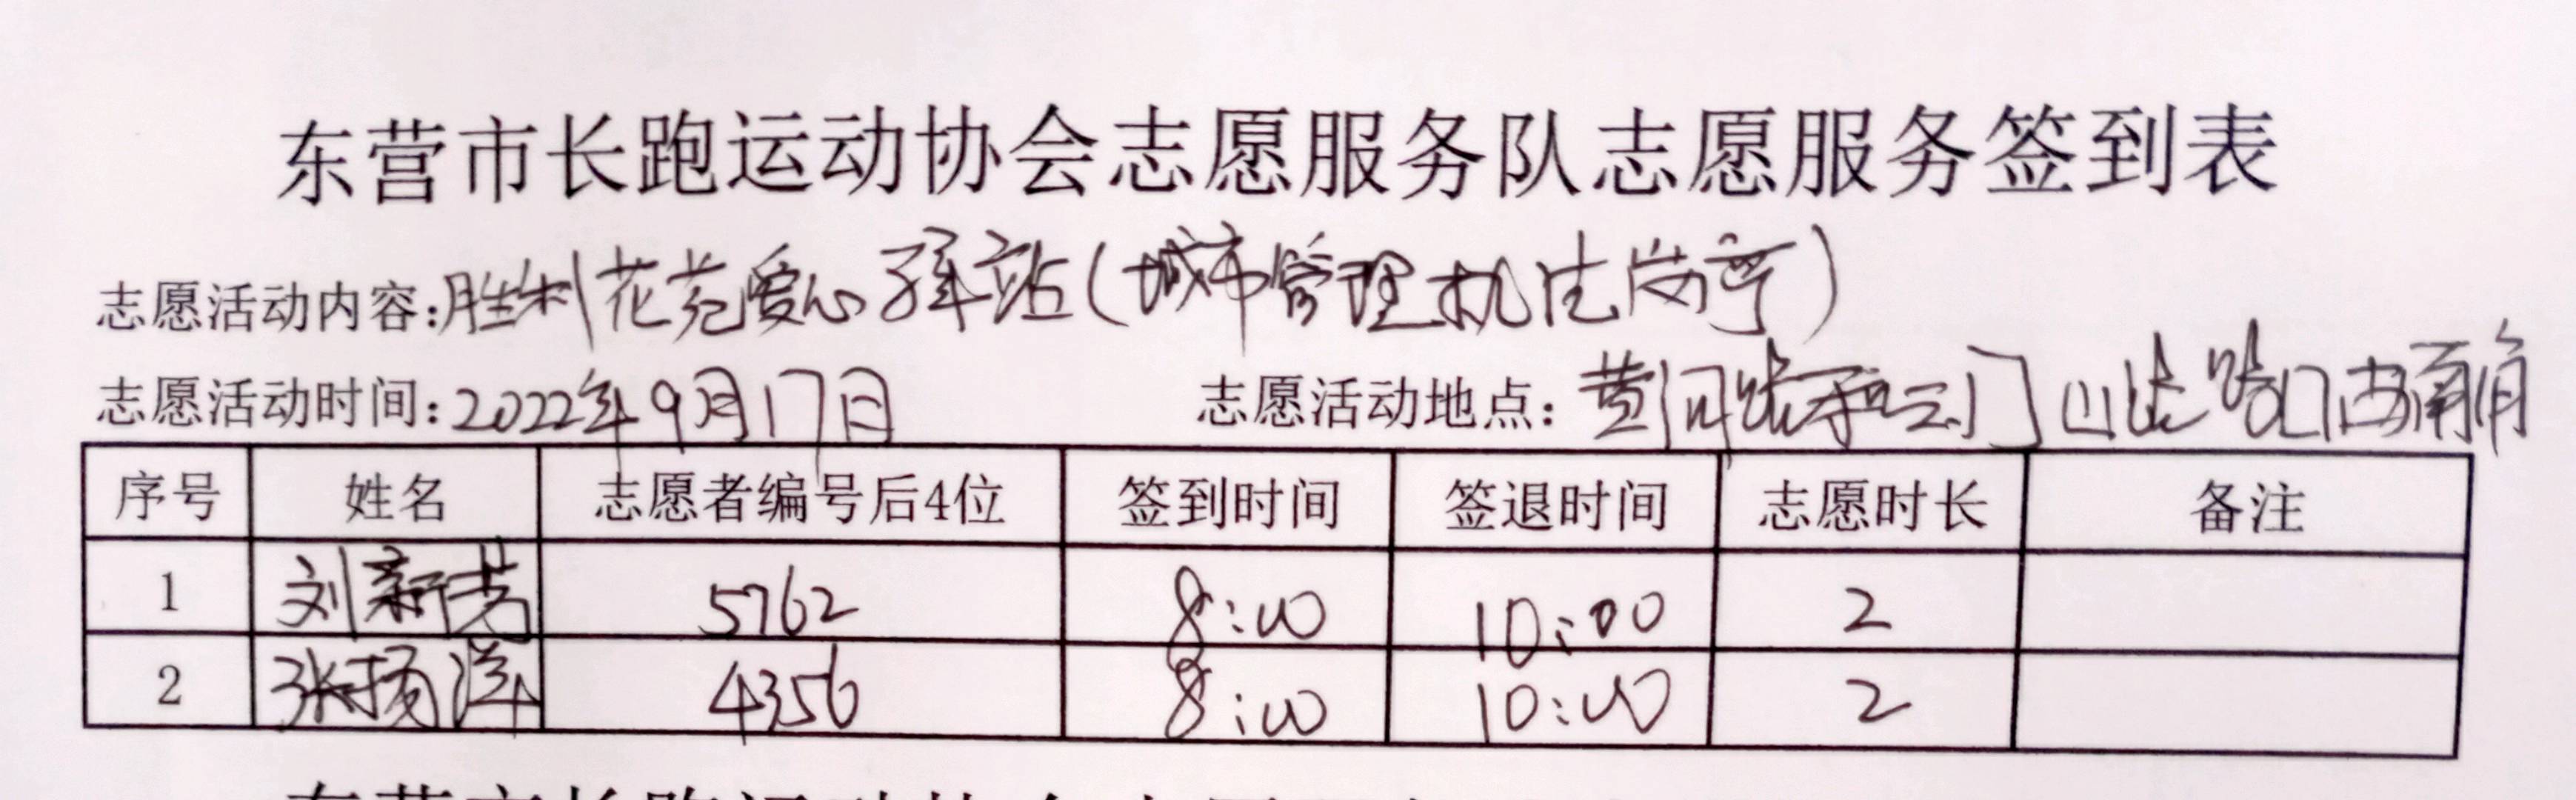 东营市长跑运动协会志愿服务队志愿服务签到表
志愿活动内容:胜利花苑爱心驿站(城市管理机生岗亭)
志愿活动时间:2022年9月17日 志愿活动地点:黄河路和云门山路路口西南角
序号 姓名 志愿者编号后4位 签到时间 签退时间 志愿时长 备注
1 刘新芳 5762 8:00 10:00 2
2 张扬洋 4356 8:00 10:00 2